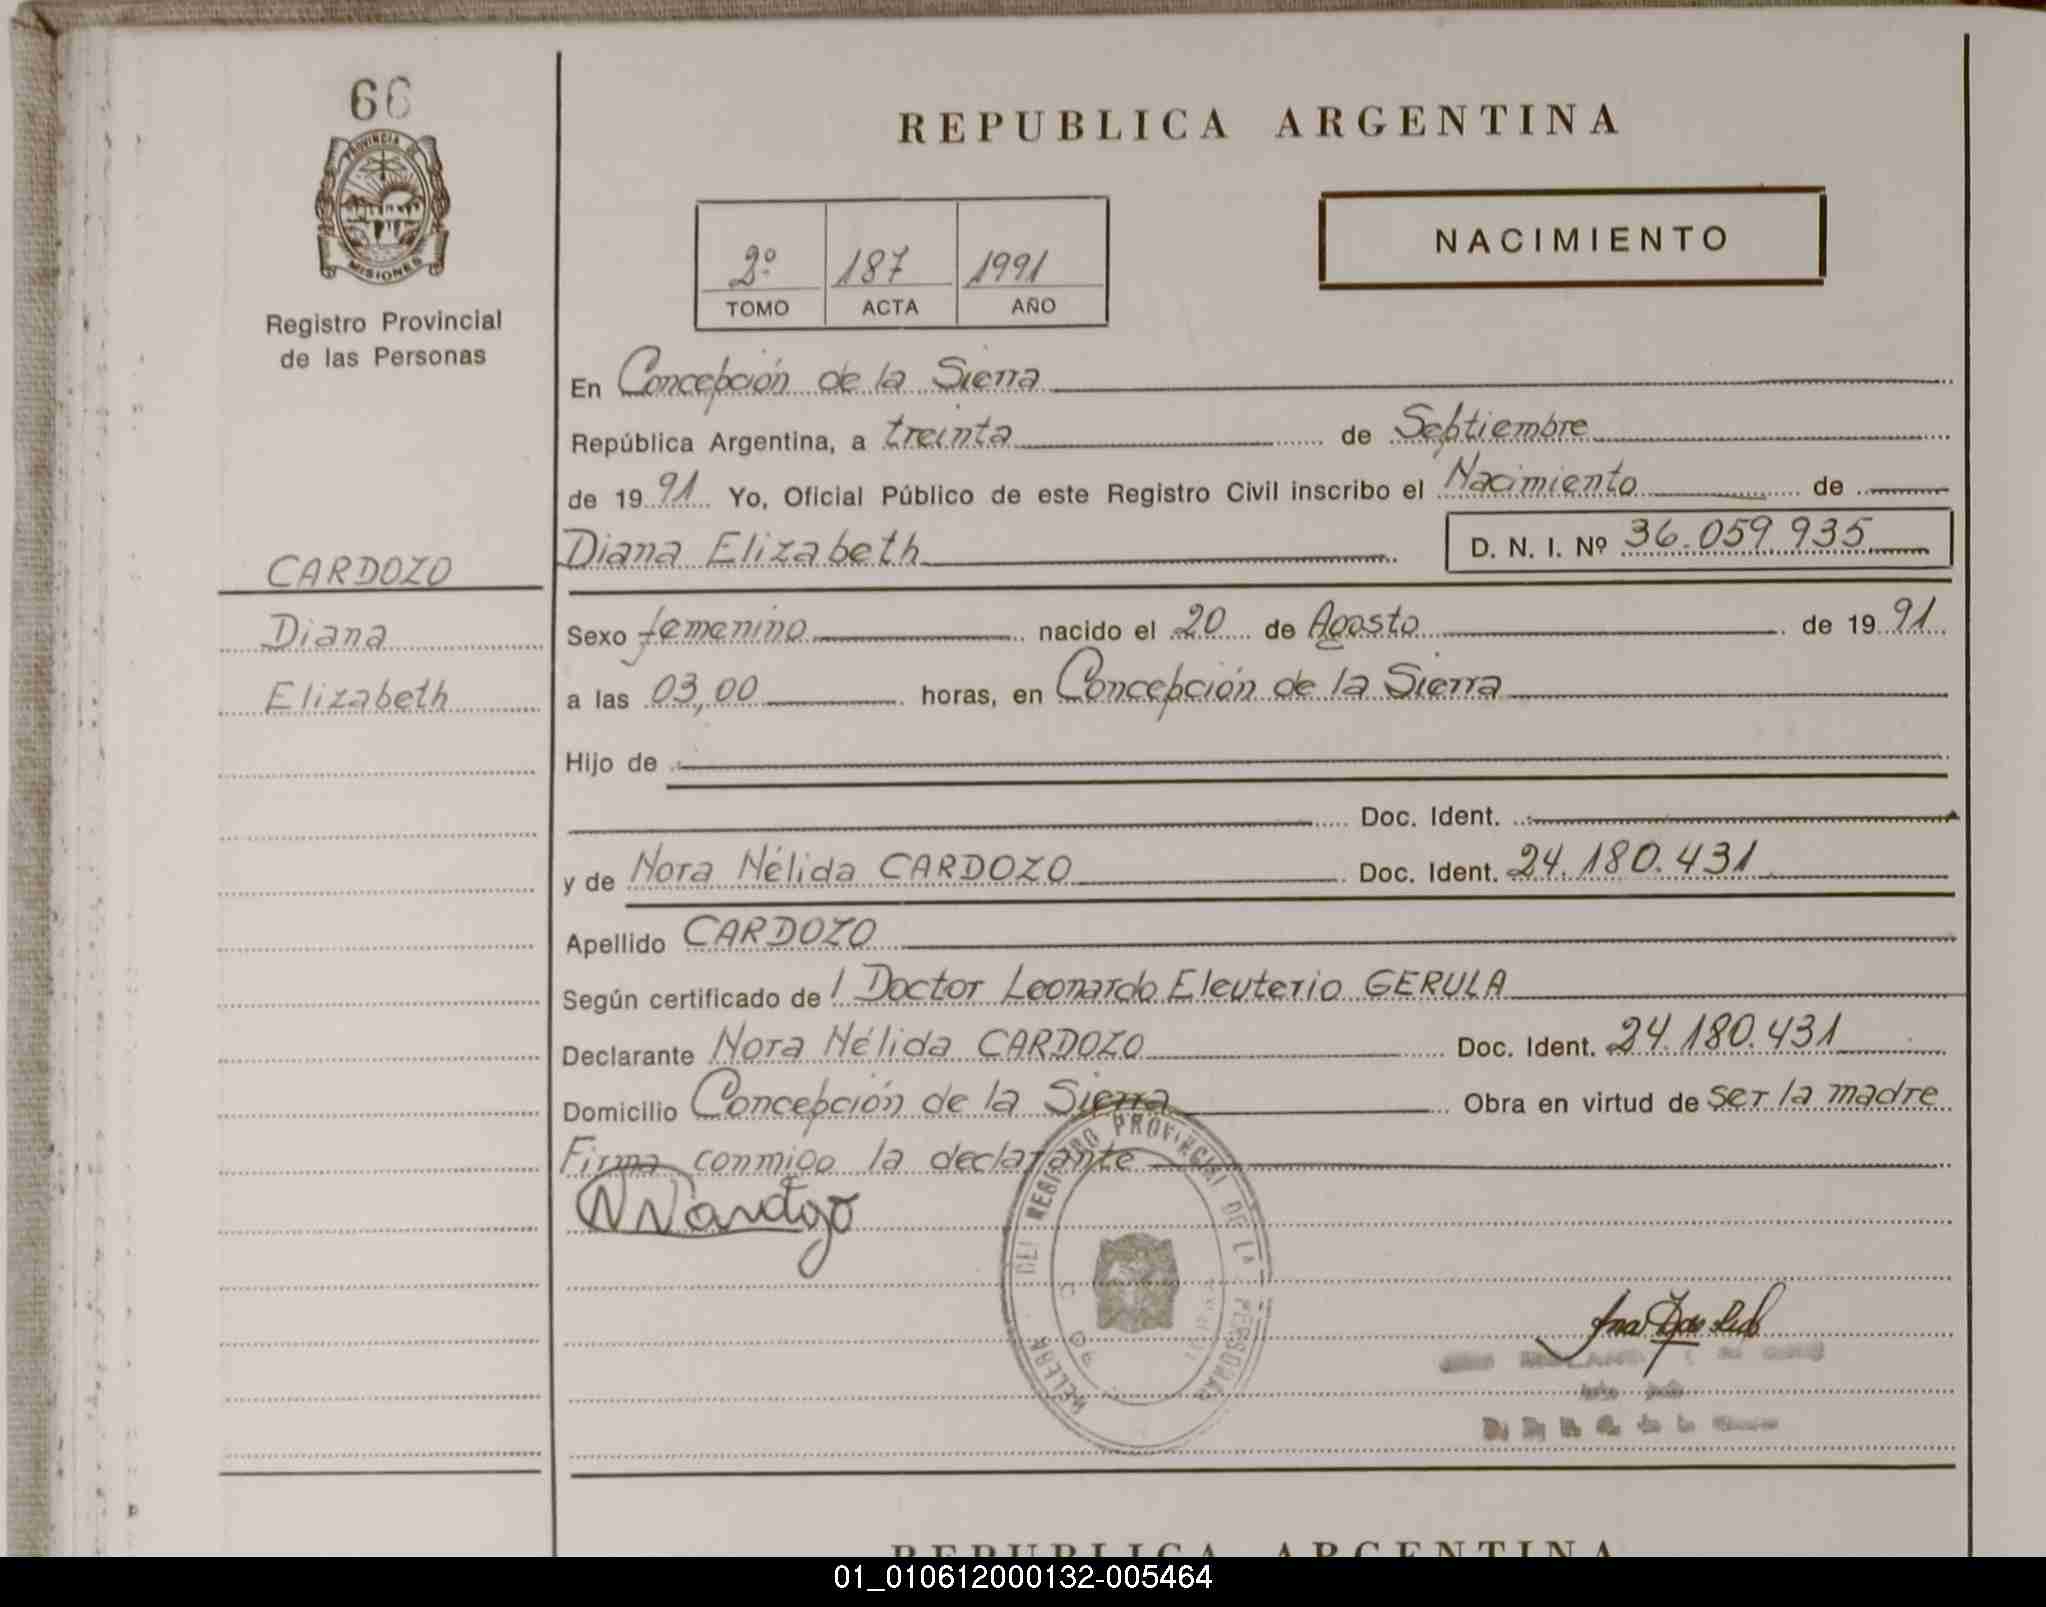 66
PROVINCIA DE
MISIONES
Registro Provincial
de las Personas
CARDOZO
Diana
Elizabeth
REPUBLICA ARGENTINA
2º 187 1991
TOMO ACTA AÑO
NACIMIENTO
En Concepción de la Sierra
República Argentina, a treinta de Septiembre
de 1991 Yo, Oficial Público de este Registro Civil inscribo el Nacimiento de
Diana Elizabeth D. N. I. Nº 36.059.935
Sexo femenino nacido el 20 de Agosto de 1991
a las 03,00 horas, en Concepción de la Sierra
Hijo de
Doc. Ident.
y de Nora Nélida CARDOZO Doc. Ident. 24.180.431
Apellido CARDOZO
Según certificado de l Doctor Leonardo Eleuterio GERULA
Declarante Nora Nélida CARDOZO Doc. Ident. 24.180.431
Domicilio Concepción de la Sierra Obra en virtud de ser la madre
Firma conmigo la declarante
DEL REGISTRO PROVINCIAL DE LA PERSONAS
REPUBLICA ARGENTINA
01_010612000132-005464